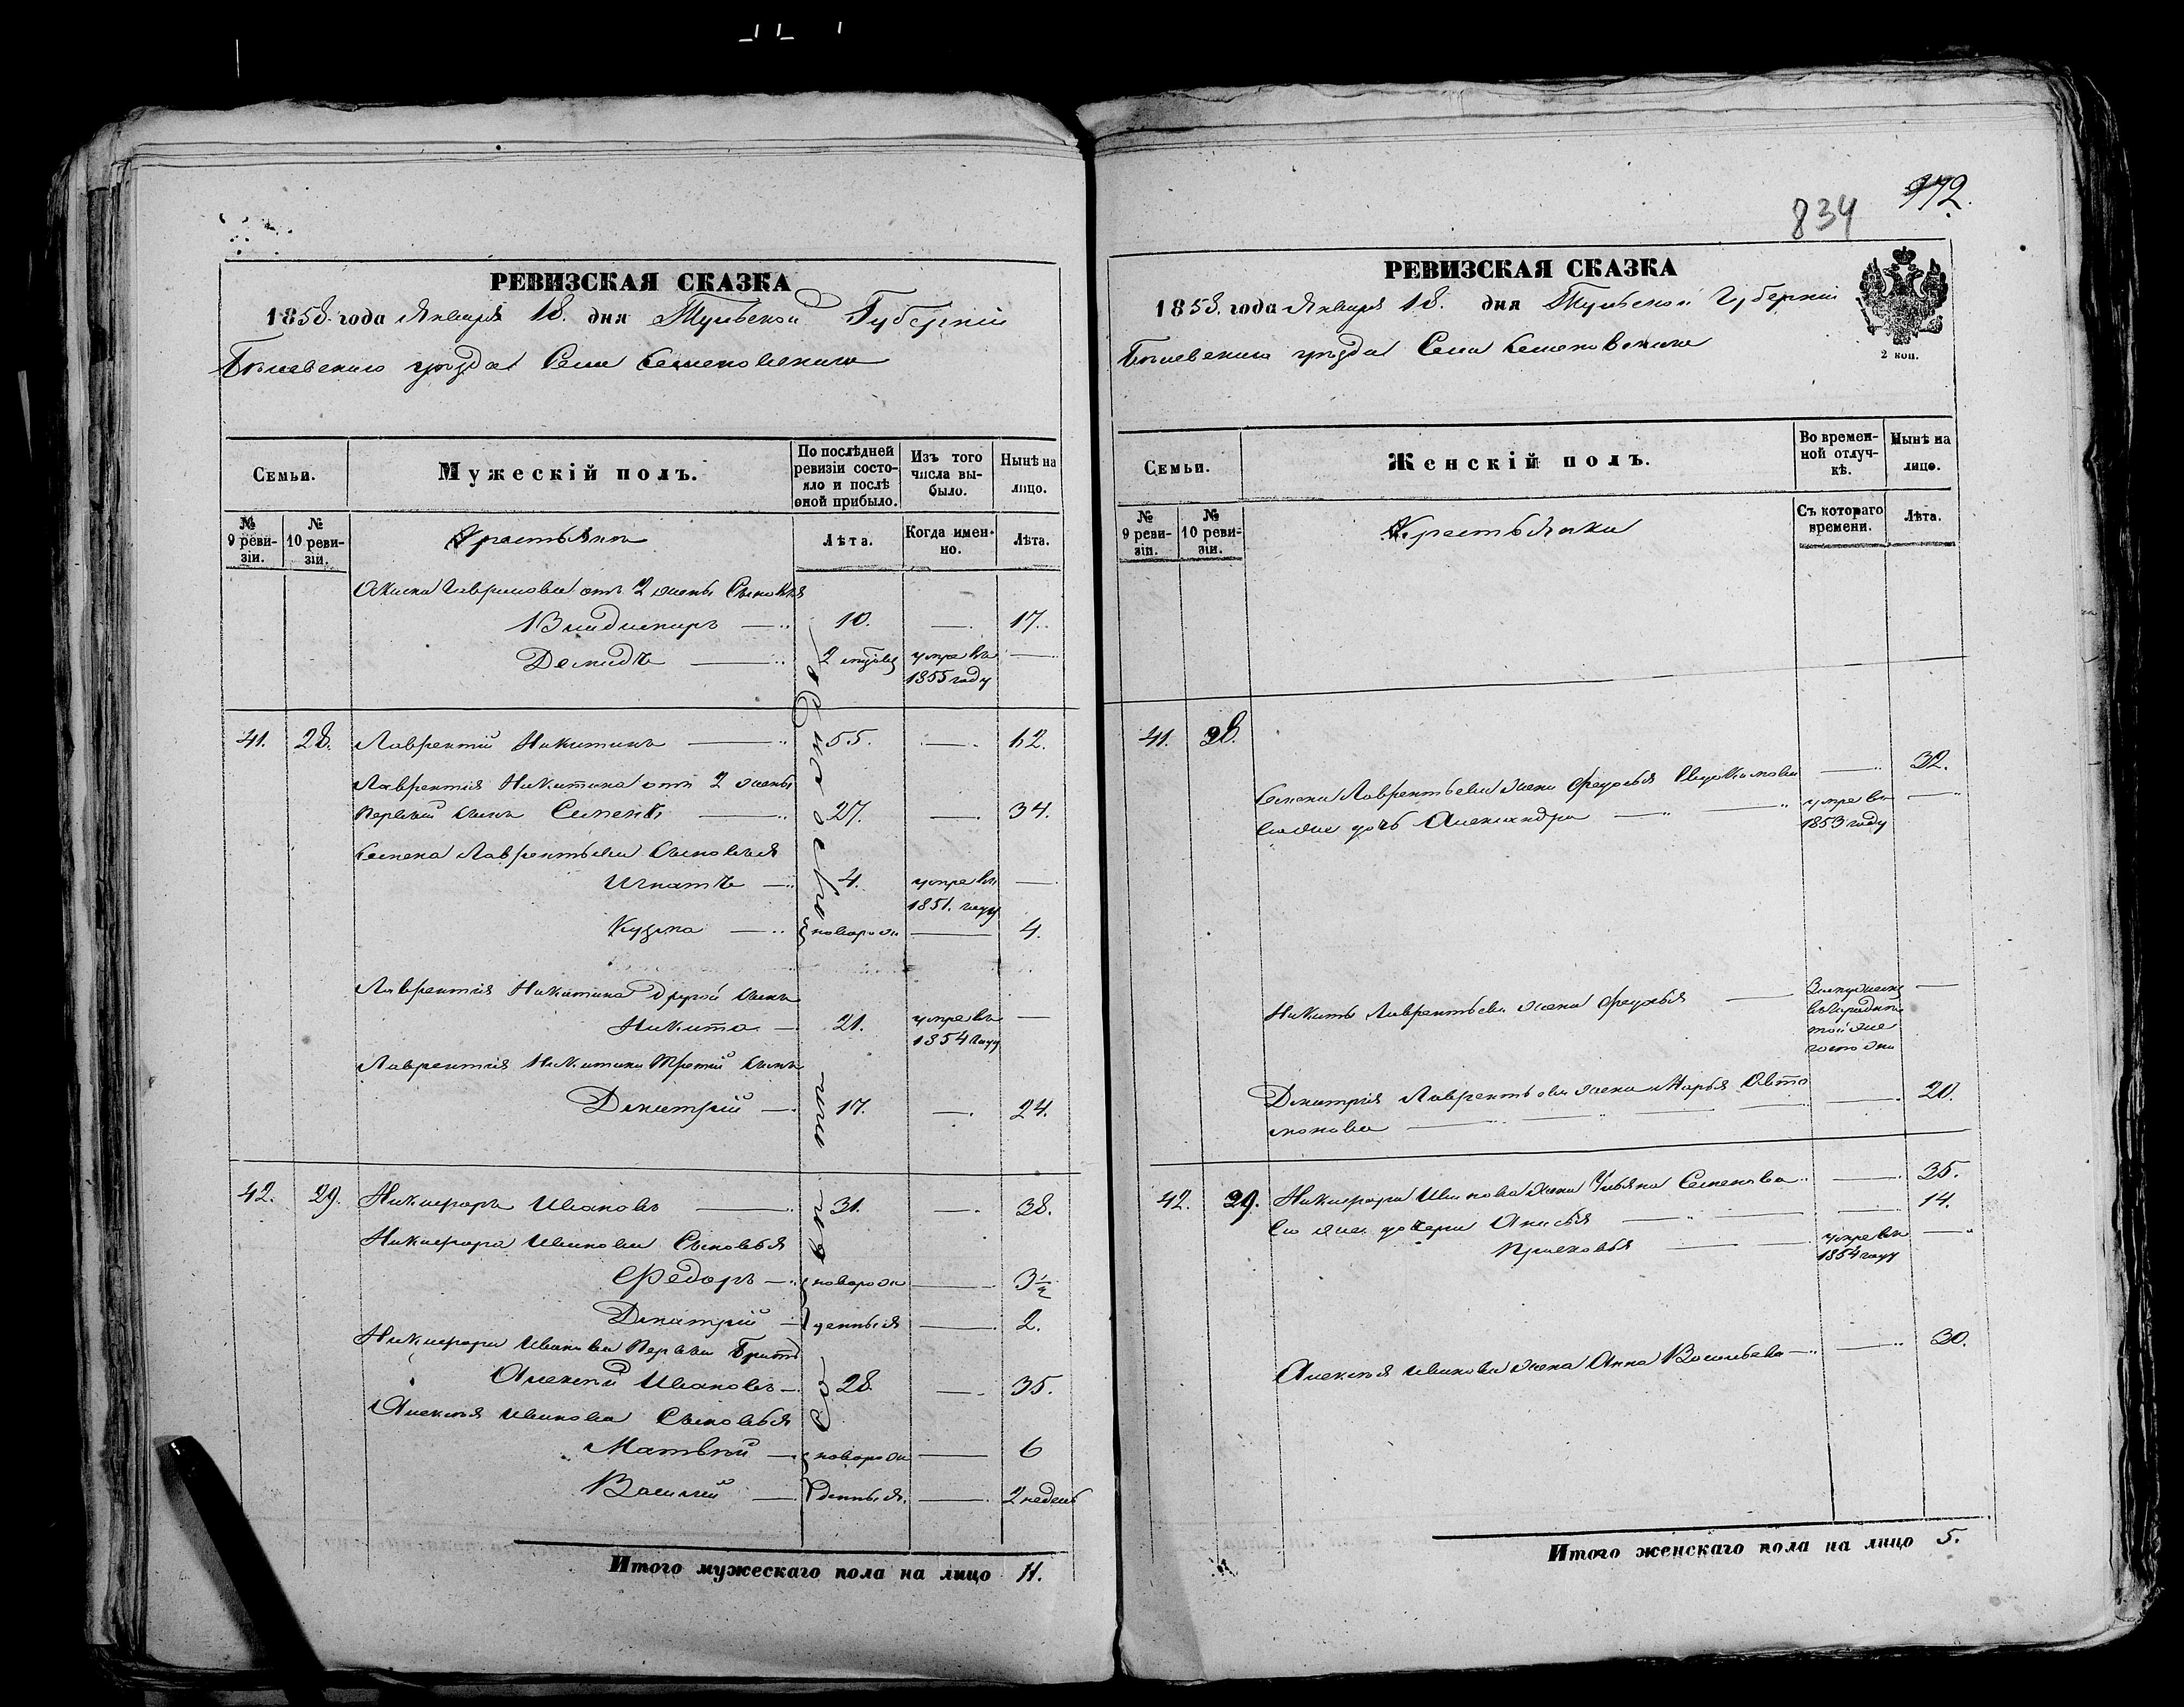 РЕВИЗСКАЯ СКАЗКА
1858. года Января 18. дня Тульской Губерніи
Бѣлевскаго уѣзда Села Семеновскаго
Семьи.
Мужескій полъ.
По послѣдней ревизіи состояло и послѣ оной прибыло.
Изъ того числа выбыло.
Нынѣ на лицо.
№ 9 ревизіи.
№ 10 ревизіи.
Крестьянъ
Лѣта.
Когда именно.
Лѣта.
Гаврилова отъ 2 жены Сыновья
Владимиръ 10. 17.
Демидъ 2 умре въ
1855 году
41. 28. Лаврентій Никитинъ 55. 62.
Лаврентія Никитина отъ 2 жены
первый сынъ Семенъ 27. 34.
Семена Лаврентьева сыновья
Игнатъ 4. умре въ
1851. году
Кузма новорож 4.
Лаврентія Никитина другой сынъ
Никита 21. умре въ
1854 году
Лаврентія Никитина третій сынъ
Дмитрій 17. 24.
42. 29. Никифоръ Ивановъ 31. 38.
Никифора Иванова Сыновья
Федоръ новорож 3½
Дмитрій денныя 2.
Никифора Иванова первый братъ
Алексѣй Ивановъ 28. 35.
Алексѣя Иванова Сыновья
Матвѣй новорож 6
Василий денныя. 2 недель
Итого мужескаго пола на лицо 11.
834 972.
РЕВИЗСКАЯ СКАЗКА
1858. года Января 18. дня Тульской Губерніи
Бѣлевскаго уѣзда Села Семеновскаго
2 коп.
Семьи.
Женскій полъ.
Во временной отлучкѣ.
Нынѣ на лицо.
№ 9 ревизіи.
№ 10 ревизіи.
Крестьянки
Съ котораго времени.
Лѣта.
41. 28.
Семена Лаврентьева жена Федосья 32.
Его же дочь Александра умре въ
1853 году
Никиты Лаврентьева жена Федосья
Дмитрія Лаврентьева жена Марья Авто 20.
монова
42. 29. Никифора Иванова жена Ульяна Семенова 35.
Его же дочери Анисья 14.
Прасковья умре въ
1854 году
Алексѣя Иванова жена Анна Васильева 30.
Итого женскаго пола на лицо 5.